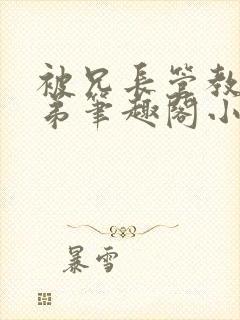 被兄长管教
弟笔趣阁小
暴雪